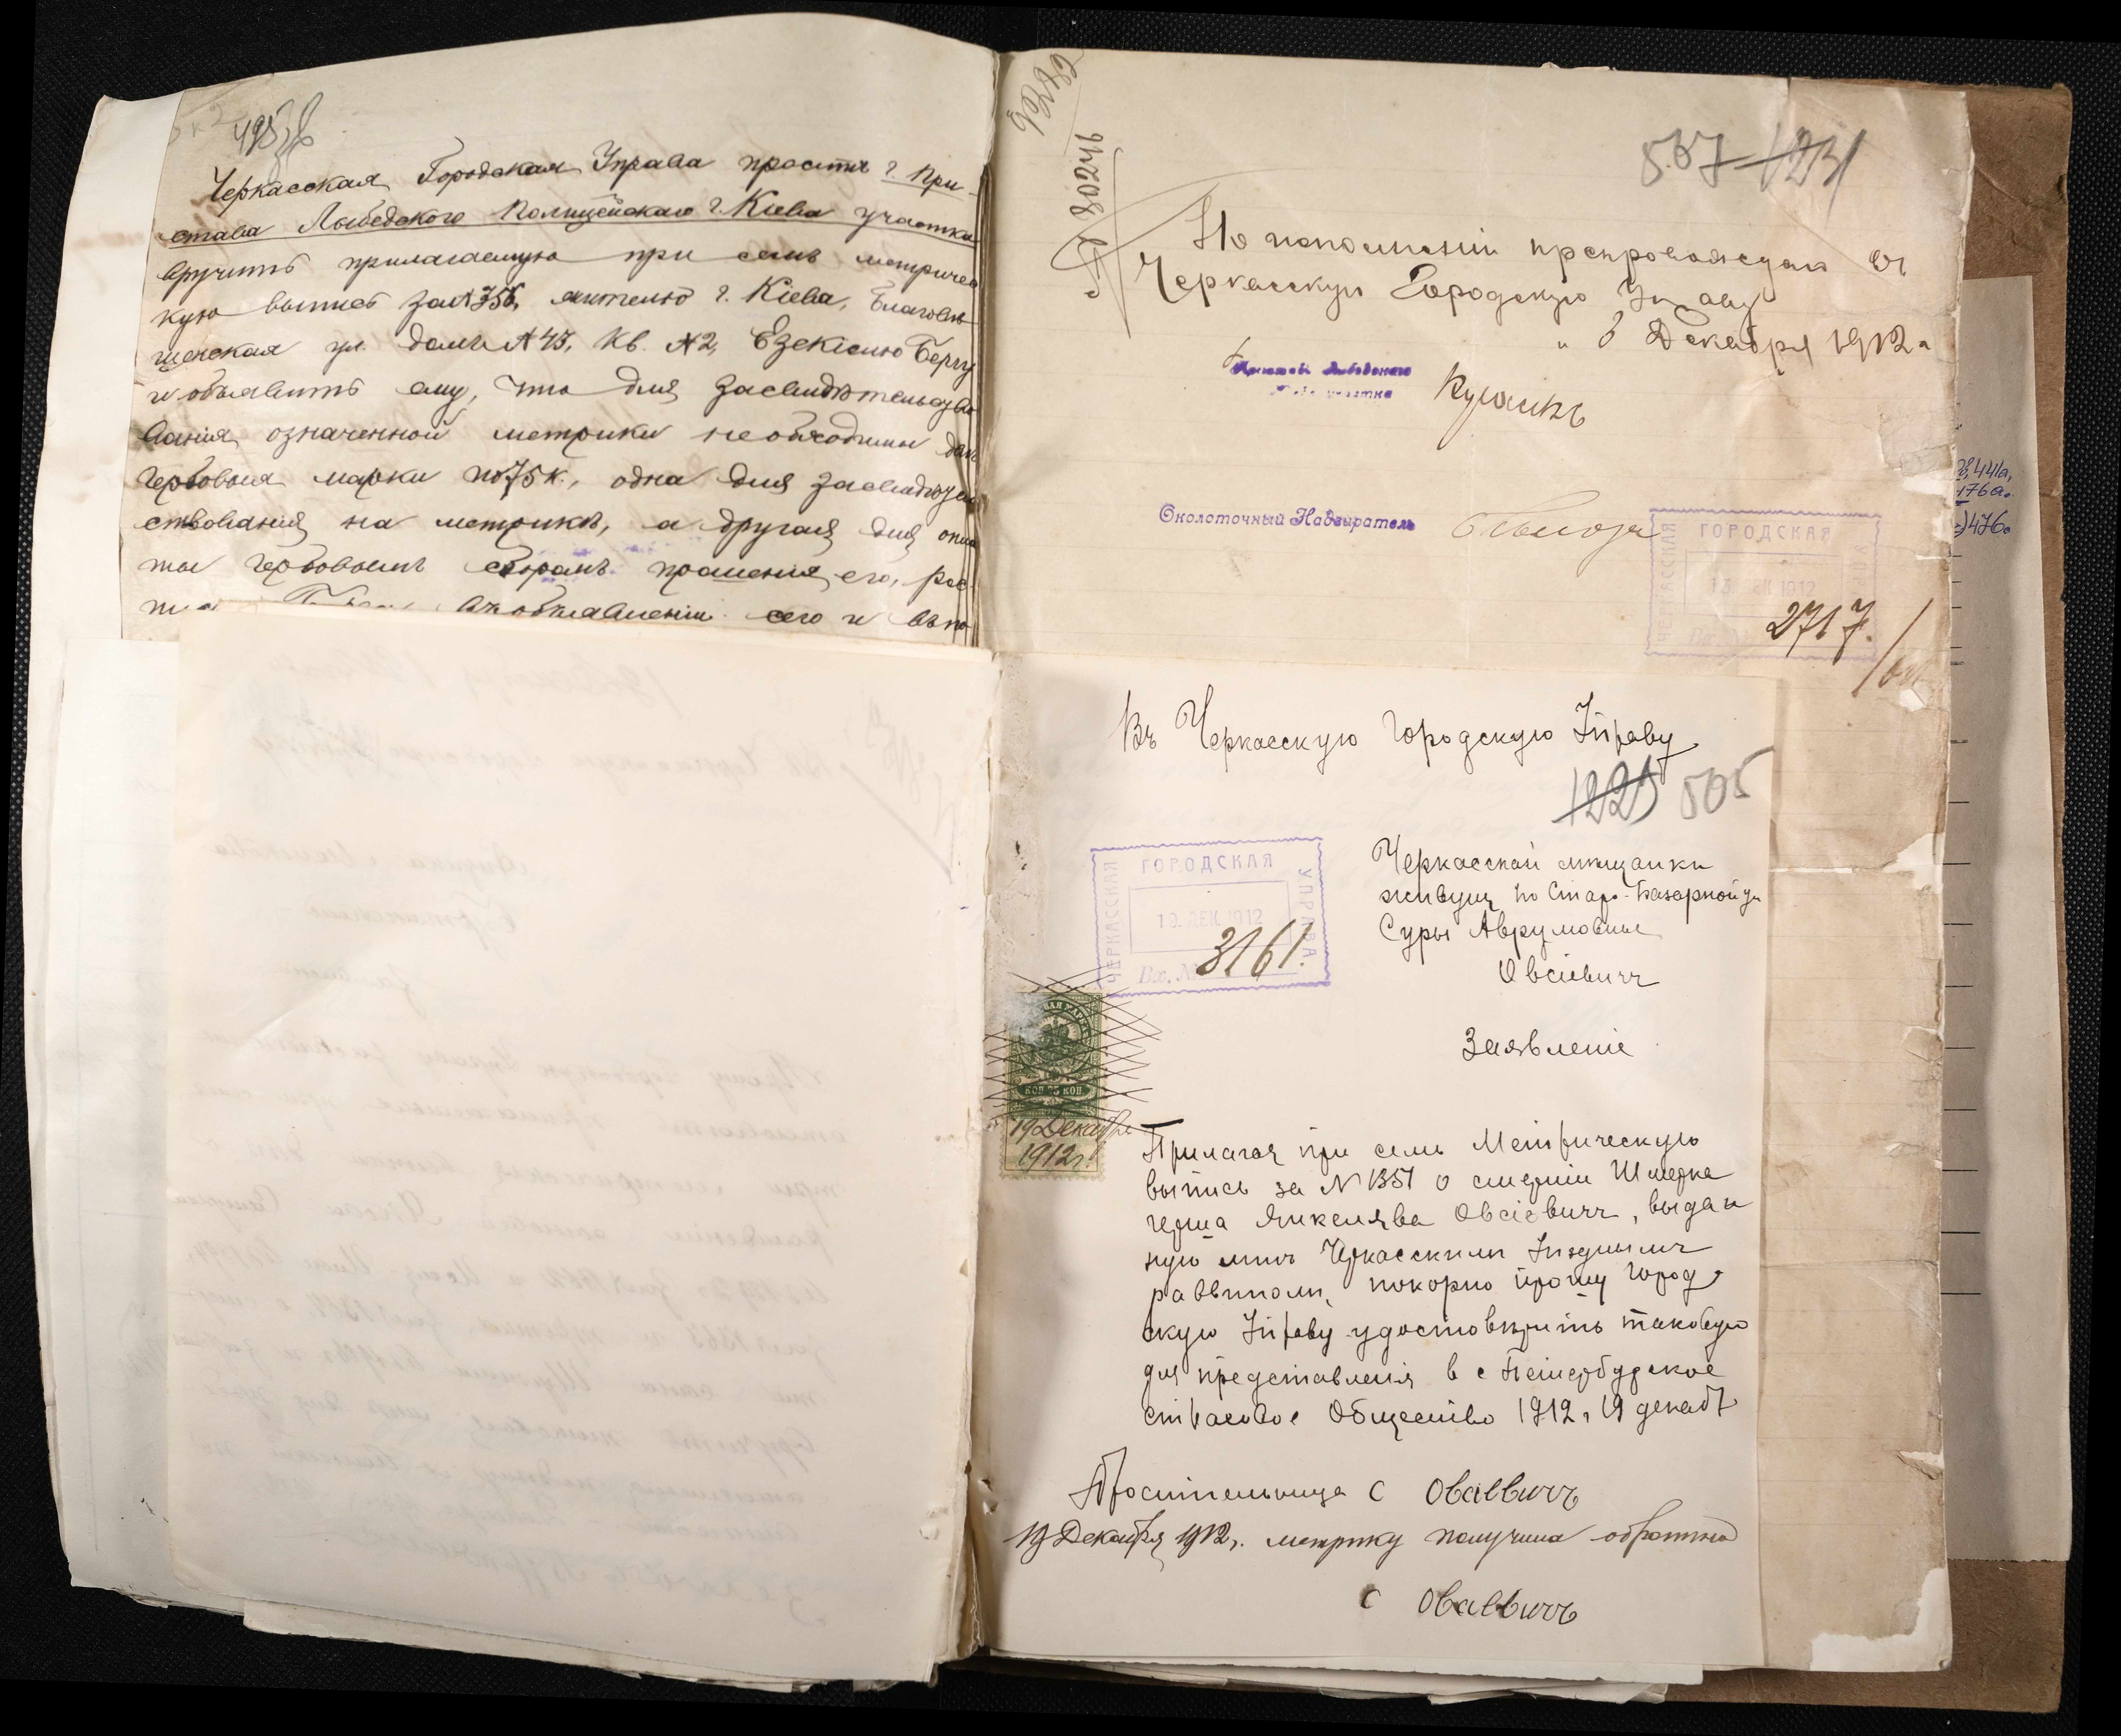 495
Черкасская Городская Управа проситъ г. При-
става Лыбедского Полицейскаго г. Кіева участка
вручить прилагаемую при семъ метричес
кую выпись за № 756, жителю г. Кіева, Благовѣ
щенская ул. домъ № 45, кв. № 2, Езекіелю Бергу
и объявить ему, что для засвидѣтельство
ванія означенной метрики необходимы двѣ
гербовыя марки по 75 к., одна для засвидѣтель
ствованія на метрикѣ, а другая для опла
ты гербовымъ сборомъ прошенія его, рас
въ объявленіи сего и
№ 80246
507 1231
По исполненіи препровождаю въ
Черкасскую Городскую Управу
" 8 Декабря 1912 г
Приставъ Лыбедскаго
участка
Околоточный Надзиратель
ЧЕРКАССКАЯ ГОРОДСКАЯ УПРАВА
13 ДЕК 1912
Вх. № 2717.
441а,
176а.
476
Въ Черкасскую Городскую Управу
1229 505
ЧЕРКАССКАЯ ГОРОДСКАЯ УПРАВА
19. ДЕК 1912
Вх. № 3161.
Черкасской мѣщанки
живущ по Старо-Базарной ул
Суры Аврумовны
Овсіевичъ
Заявленіе
КОП 75 КОП
19 Декабря
1912 г.
Прилагая при семъ Метрическую
выпись за № 1351 о смерти Шмерка
герша Янкелява Овсіевичъ, выдан
ную мнѣ Черкасскимъ Уѣзднымъ
раввиномъ, покорно прошу Город
скую Управу удостовѣрить таковую
для представленія в с Петербудское
страховое Общество 1912 г 19 декаб
Просительница С Овсіевичъ
19 Декабря 1912 г. метрику получила обратно
С Овсіевичъ